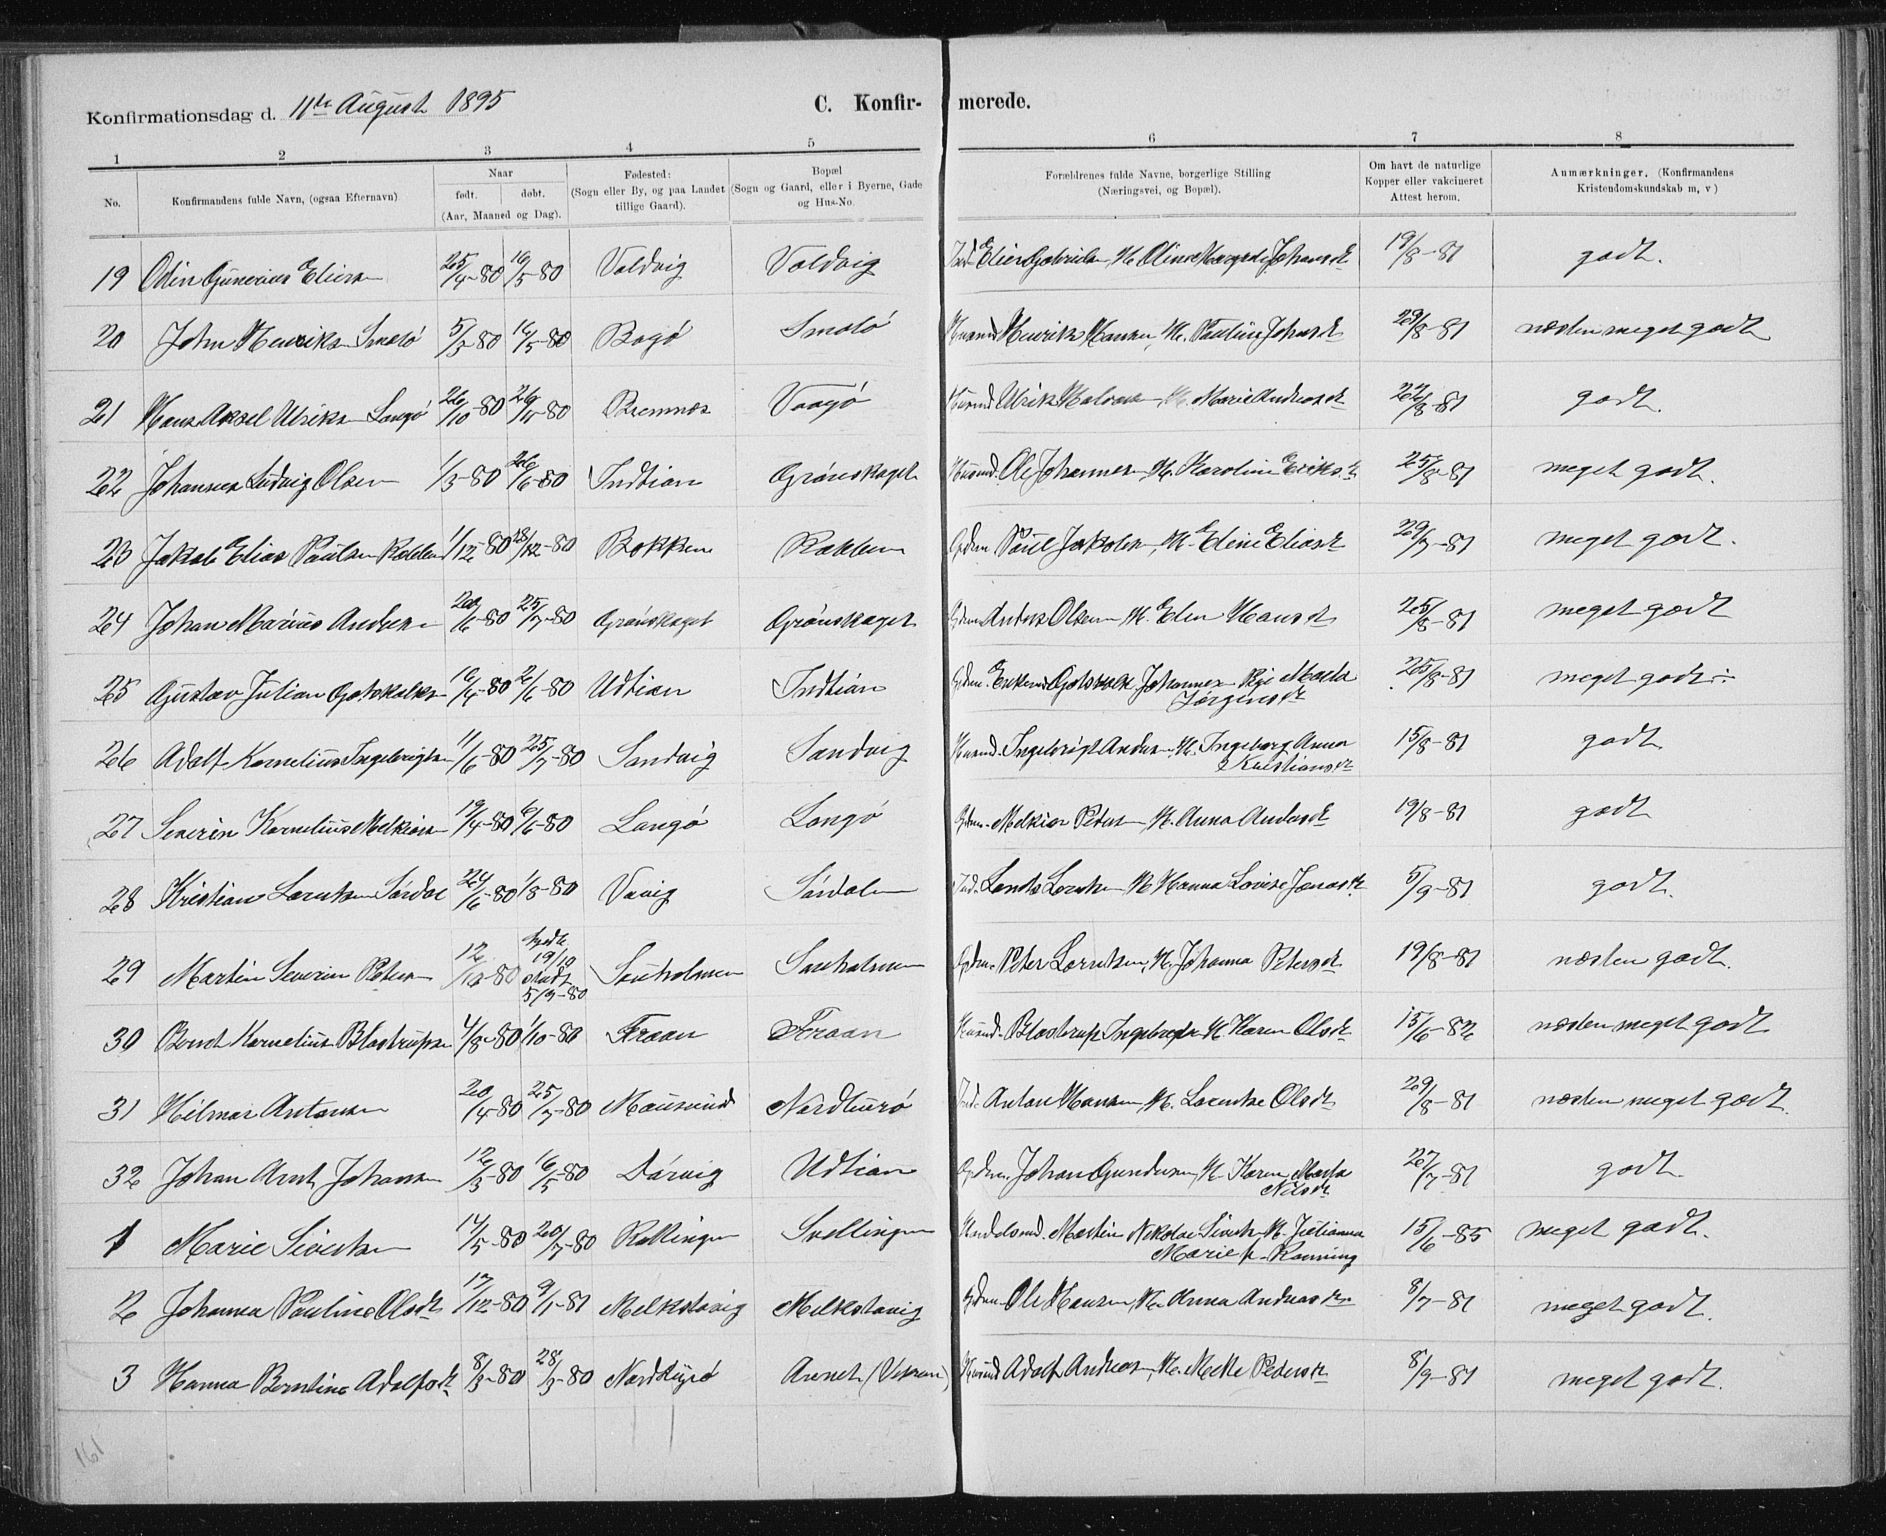 Konfirmationsdag d. 11te August 1895
C. Konfir- merede.
1 2 3 4 5 6 7 8
No.
Konfirmandens fulde Navn, (ogsaa Efternavn)
Naar
født. døbt.
(Aar, Maaned og Dag).
Fødested:
(Sogn eller By, og paa Landet
tillige Gaard).
Bopæl
(Sogn og Gaard, eller i Byerne, Gade
og Hus-No.
Forældrenes fulde Navne, borgerlige Stilling
(Næringsvei, og Bopæl).
Om havt de naturlige
Kopper eller vakcineret
Attest herom.
Anmærkninger. (Konfirmandens
Kristendomskundskab m, v)
19 Odin Gunerius Eliesen 25/4-80 16/5-80 Valdvig Valdvig Ind. Elier Gabrielsen, H. Oline Margrete Johansdt 19/8-81 godt.
20 John Henriksen Smølø 5/3-80 16/5-80 Bogø Smølø Husmd Henrik Hansen, H. Pauline Johnsdt 29/8-81 næsten meget godt
21 Hans Aksel Ulriksen Langø 26/10-80 26/11-80 Bremnes Vaagø Husmd Ulrik H. Marie Andreasdt 22/8-81 godt.
22 Johannes Ludvig Olsen 1/3-80 26/6-80 Indtian Grønskaget Husmd. Ole Johannesen H. Karoline Eriksdt 25/8-81 meget godt.
23 Jakob Elias Paulsen 1/12-80 18/12-80 Gdmn Paul Jakobsen, H. Eline Eliasdt 29/7-81 meget godt.
24 Johan Marius Andersen 20/6-80 25/7-80 Grønskaget Grønskaget Gdmn Anders Olsen H. Elen Hansdt 25/8-81 meget godt
25 Gustav Julian Gotskalksen 16/4-80 2/6-80 Udtian Indtian Gdmn. Enkemd Gotskalk Johannesen Pige Marta
Jørgensdt 25/8-81 meget godt
26 Adolf Kornelius Ingebrigtsen 11/6-80 25/7-80 Sandvig Sandvig Husmd. Ingebrigt Andersen H. Ingeborg Anna
Kristiansdt 15/8-81 godt
27 Severin Kornelius Melkiorsen 19/4-80 6/6-80 Langø Langø Gdmn. Melkior Petersen H. Anna Andersdt 19/8-81 godt
28 Kristian Lorntsen Sørdal 24/6-80 1/8-80 Vavig Sørdalen Ind. Lornts Lorntsen H Hanna Lovise Jonasdt 5/9-81 godt.
29 Martin Severin Petersen 12/10-80 hjdt.
19/10
stadf.
5/12-80 Sauholmen Sauholmen Gdmn. Peter Lorntsen, H. Johanna Petersdt 19/8-81 næsten godt.
30 Bernt Kornelius Blastrupsen 4/8-80 1/10-80 Fraan Fraan Husmd. Blastrup Ingebrigtsen H. Karen Olsdt 15/6-82 næsten meget godt
31 Hilmar Antonsen 20/4-80 25/7-80 Mausund Nordburø Ind. Anton Hansen H. Lorentse Olsdt 29/8-81 næsten meget godt.
32 Johan Arnt Johansen 12/3-80 16/5-80 Dørvig Udtian Gdmn. Johan Gundersen H. Karen Marta
Nilsdt 27/7-81 godt.
1 Marie Sivertsen 14/5-80 20/7-80 Svellingen Handelsmd. Martin Nikolai Sivertsen H. Julianna
Marie f. Rønning 15/6-85 meget godt.
2 Johanna Pauline Olsdt 17/12-80 9/1-81 Melkstavig Melkstavig Gdmn. Ole Hansen, H. Anna Andreasdt 8/7-81 meget godt.
3 Hanna Berntine Adolfsdt 8/3-80 28/3-80 Arnet Husmd Adolf Andreasen, H. Mette Pedersdt 8/9-81 meget godt.
161